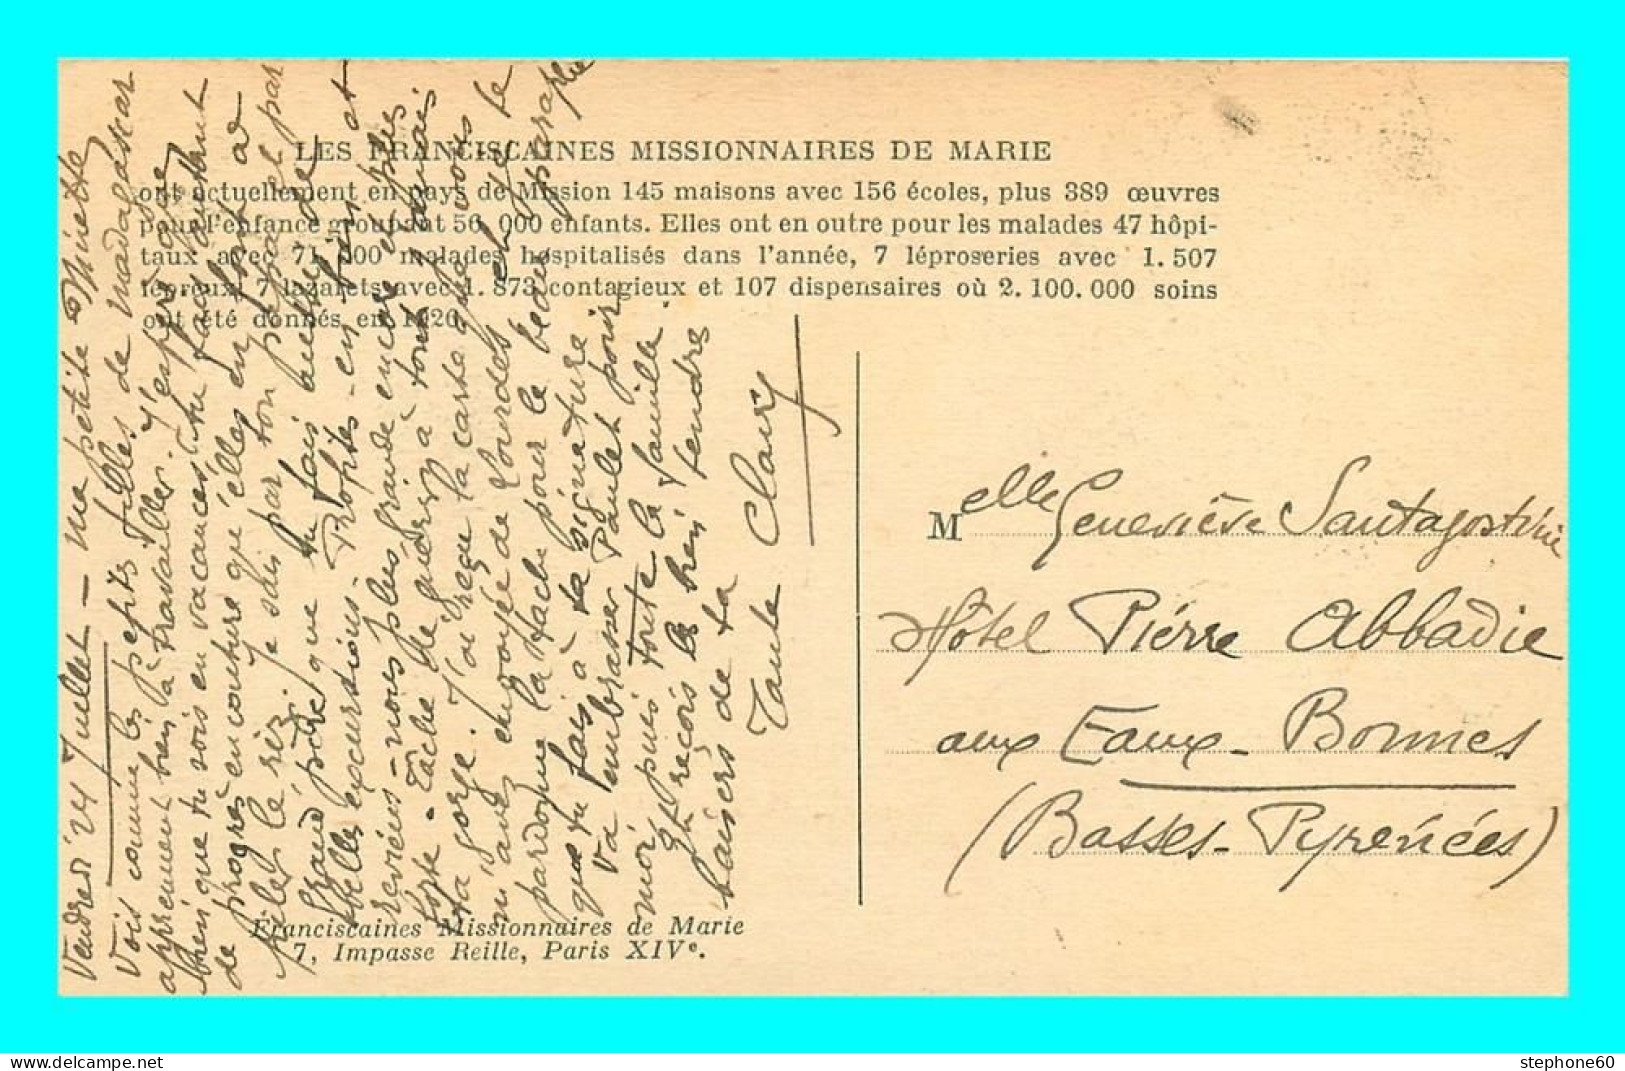 LES FRANCISCAINES MISSIONNAIRES DE MARIE
ont actuellement en pays de Mission 145 maisons avec 156 écoles, plus 389 œuvres
pour l'enfance groupant 56.000 enfants. Elles ont en outre pour les malades 47 hôpi-
taux avec 71.000 malades hospitalisés dans l'année, 7 léproseries avec 1.507
lépreux, 7 lazarets avec 1.873 contagieux et 107 dispensaires où 2.100.000 soins
ont été donnés en 1926.
Vendredi 24 Juillet - Ma petite Ginette
Vois comme les petits filles de Madagascar
apprennent bien à travailler. J'espère que
bien que tu sois en vacances, tu fais autant
de progrès en couture qu'elles en font à
piler le riz. Je sais par ton papa et par
grand père que tu fais aussi de
belles excursions. Profites-en bien et
reviens-nous plus grande encore et plus
forte - Tâche de guérir à tout jamais
ta gorge. J'ai reçu la carte que vous
m'avez envoyée de Lourdes et je te
pardonne la tache pour le beau paraphe
que tu fais à ta signature
Va embrasser Paulet pour
moi puis toute la famille.
Et reçois les bien tendres
baisers de ta
Tante Claury
Franciscaines Missionnaires de Marie
7, Impasse Reille, Paris XIVe.
Melle Geneviève Santagostini
Hôtel Pierre Abbadie
aux Eaux-Bonnes
(Basses-Pyrénées)
stephone60